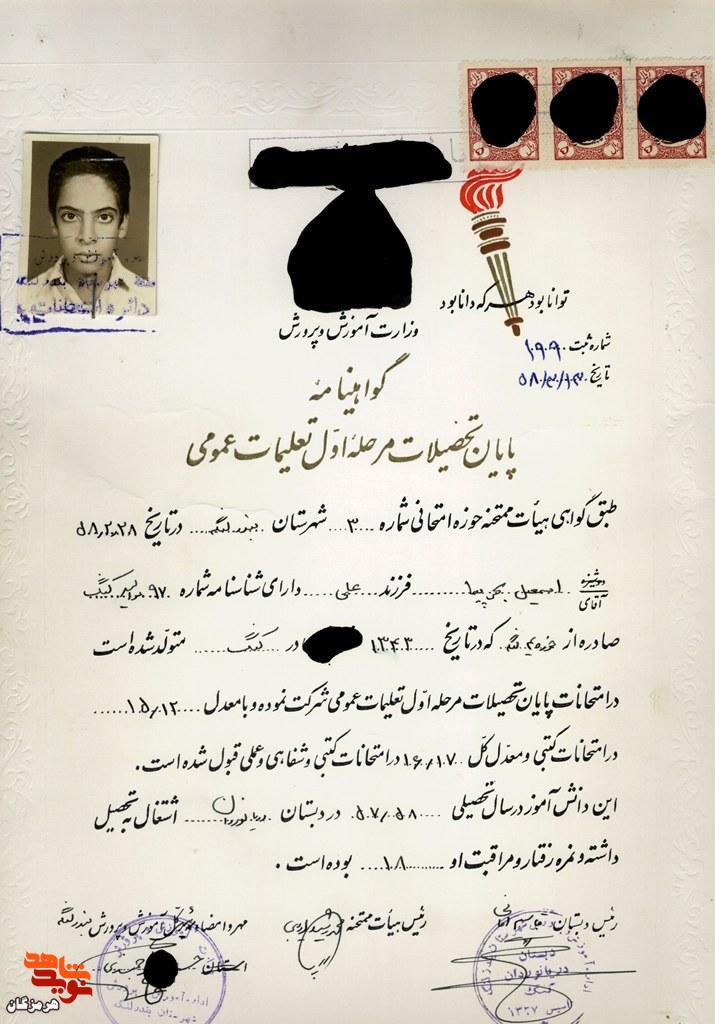 توانا بود هر که دانا بود
وزارت آموزش و پرورش
شماره ثبت ۱۰۹۰
تاریخ
گواهینامه
پایان تحصیلات مرحلهٔ اوّل تعلیمات عمومی
طبق گواهی هیأت ممتحنه حوزه امتحانی شماره ...۳... شهرستان بندرلنگه... در تاریخ ۵۸,۲,۲۸
دوشیزه
آقای
اسمعیل ... فرزند علی ... دارای شناسنامه شماره ۹۷
صادره از ... که در تاریخ ۱۳۴۳... در کنگ... متولّد شده است
در امتحانات پایان تحصیلات مرحله اوّل تعلیمات عمومی شرکت نموده و با معدل ۱۵/۱۲...
در امتحانات کتبی و معدّل کل ۱۶/۱۷ در امتحانات کتبی و شفاهی و عملی قبول شده است.
این دانش آموز در سال تحصیلی ۵۷/۵۸... در دبستان دریانوردان... اشتغال به تحصیل
داشته و نمره رفتار و مراقبت او ...۱۸... بوده است.
رئیس دبستان
رئیس هیأت ممتحنه
مهر و امضاء آموزش و پرورش بندرلنگه
استان
دبستان
دریانوردان
کنگ
تاسیس ۱۳۲۷
نوید شاهد
هرمزگان